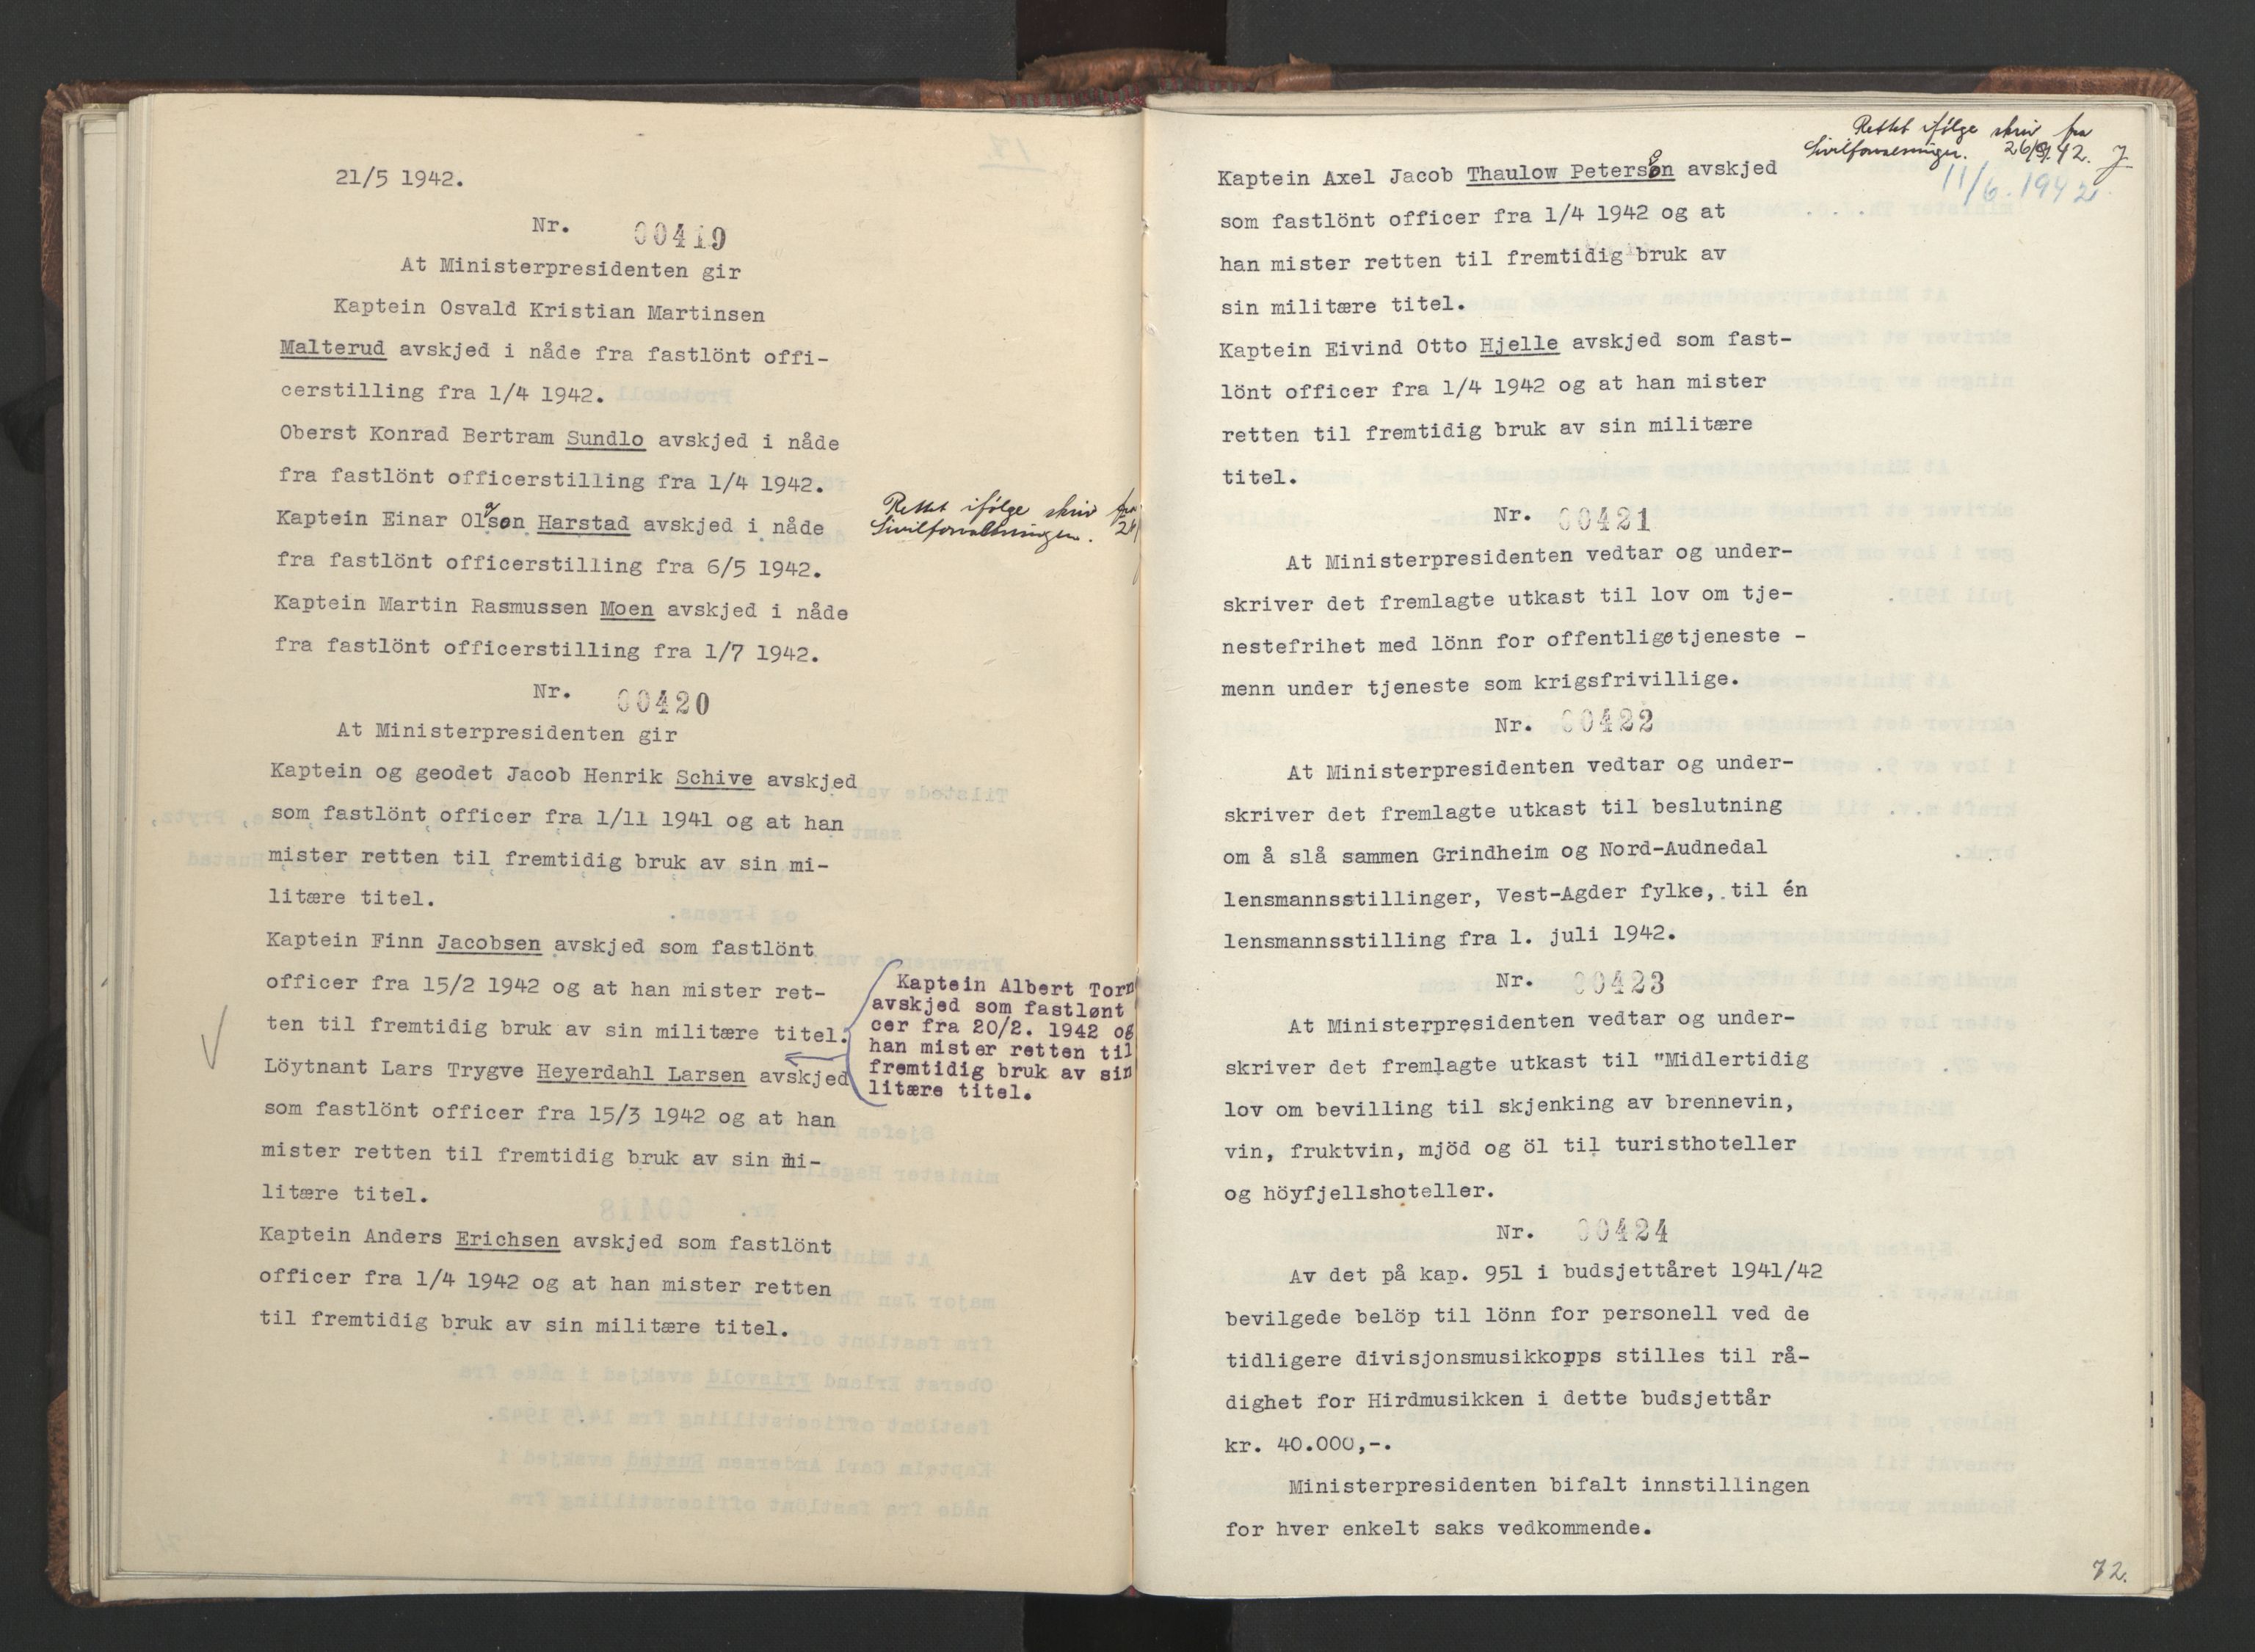 21/5 1942.
Nr. 00419
At Ministerpresidenten gir
Kaptein Osvald Kristian Martinsen
Malterud avskjed i nåde fra fastlönt offi-
cerstilling fra 1/4 1942.
Oberst Konrad Bertram Sundlo avskjed i nåde
fra fastlönt officerstilling fra 1/4 1942.
Kaptein Einar Olson Harstad avskjed i nåde
fra fastlönt officerstilling fra 6/5 1942.
Rettet ifølge skriv fra
Sivilforvaltningen.
Kaptein Martin Rasmussen Moen avskjed i nåde
fra fastlönt officerstilling fra 1/7 1942.
Nr. 00420
At Ministerpresidenten gir
Kaptein og geodet Jacob Henrik Schive avskjed
som fastlönt officer fra 1/11 1941 og at han
mister retten til fremtidig bruk av sin mi-
litære titel.
Kaptein Finn Jacobsen avskjed som fastlönt
officer fra 15/2 1942 og at han mister ret-
ten til fremtidig bruk av sin militære titel.
Kaptein Albert Torn
avskjed som fastlønt
cer fra 20/2. 1942 og
han mister retten til
fremtidig bruk av sin
litære titel.
Löytnant Lars Trygve Heyerdahl Larsen avskjed
som fastlönt officer fra 15/3 1942 og at han
mister retten til fremtidig bruk av sin mi-
litære titel.
Kaptein Anders Erichsen avskjed som fastlönt
officer fra 1/4 1942 og at han mister retten
til fremtidig bruk av sin militære titel.
Rettet ifølge skriv fra
Sivilforvaltningen. 26/9.42.
11/6.1942
Kaptein Axel Jacob Thaulow Peterson avskjed
som fastlönt officer fra 1/4 1942 og at
han mister retten til fremtidig bruk av
sin militære titel.
Kaptein Eivind Otto Hjelle avskjed som fast-
lönt officer fra 1/4 1942 og at han mister
retten til fremtidig bruk av sin militære
titel.
Nr. 00421
At Ministerpresidenten vedtar og under-
skriver det fremlagte utkast til lov om tje-
nestefrihet med lönn for offentlige tjeneste -
menn under tjeneste som krigsfrivillige.
Nr. 00422
At Ministerpresidenten vedtar og under-
skriver det fremlagte utkast til beslutning
om å slå sammen Grindheim og Nord-Audnedal
lensmannsstillinger, Vest-Agder fylke, til én
lensmannsstilling fra 1. juli 1942.
Nr. 00423
At Ministerpresidenten vedtar og under-
skriver det fremlagte utkast til "Midlertidig
lov om bevilling til skjenking av brennevin,
vin, fruktvin, mjöd og öl til turisthoteller
og höyfjellshoteller.
Nr. 00424
Av det på kap. 951 i budsjettåret 1941/42
bevilgede belöp til lönn for personell ved de
tidligere divisjonsmusikkopps stilles til rå-
dighet for Hirdmusikken i dette budsjettår
kr. 40.000,-.
Ministerpresidenten bifalt innstillingen
for hver enkelt saks vedkommende.
72.